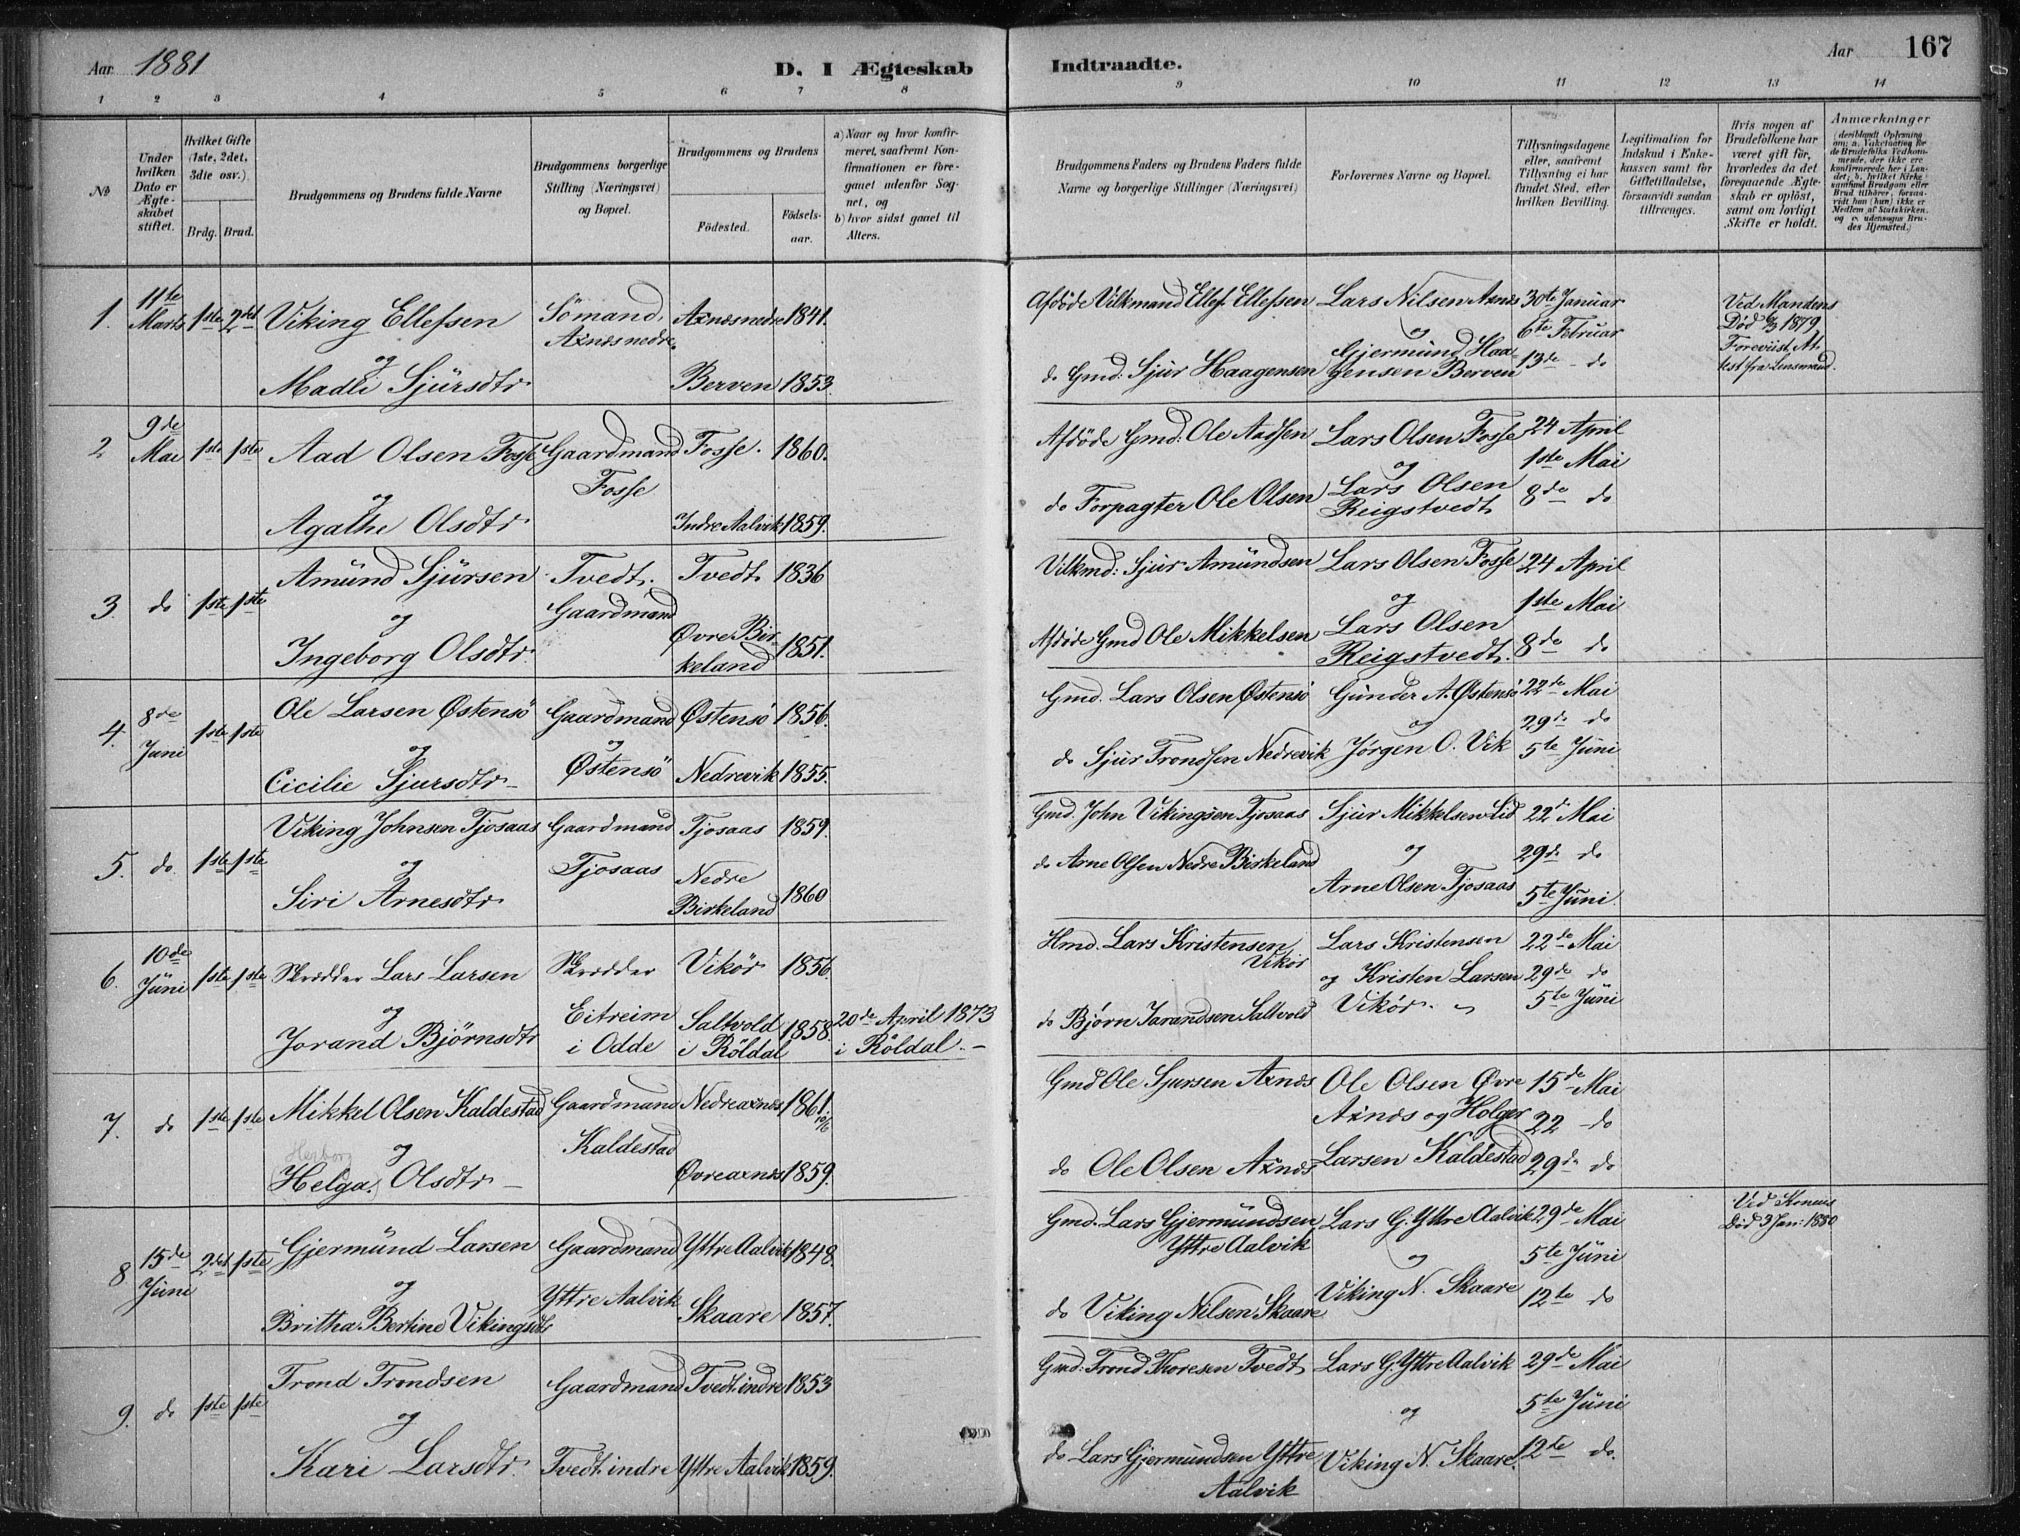 Aar 1881
D. I Ægteskab
Indtraadte.
Aar 167
1 2 3 4 5 6 7 8 9 10 11 12 13 14
No
Under hvilken Dato er Ægteskabet stiftet.
Hvilket Gifte (1ste, 2det, 3die osv.).
Brdg. Brud.
Brudgommens og Brudens fulde Navne
Brudgommens borgerlige Stilling (Næringsvei) og Bopæl.
Brudgommens og Brudens
Födested.
Födsels-aar.
a) Naar og hvor konfirmeret, saafremt Konfirmationen er foregaaet udenfor Sognet, og
b) hvor sidst gaaet til Alters.
Brudgommens Faders og Brudens Faders fulde Navne og borgerlige Stillinger (Næringsvei)
Forlovernes Navne og Bopæl.
Tillysningsdagene eller, saafremt Tillysning ei har fundet Sted, efter hvilken Bevilling.
Legitimation for Indskud i Enkekassen samt for Giftetilladelse, forsaavidt saadan tiltrænges.
Hvis nogen af Brudefolkene har været gift för, hvorledes da det foregaaende Ægteskab er oplöst, samt om lovligt Skifte er holdt.
Anmærkninger
1. 11te Marts 1ste 2det Viking Ellefsen
og
Madli Sjürsdtr.
Sömand, Axnæsnedre.
Axnæsnedre 1841.
Berven 1853.
Afdöde Vilkmand Ellef Ellefsen
do Gmd: Sjur Haagensen
Lars Nilsen Axnæs
og
Gjermünd Haagensen Berven
30te Januar
6te Februar
13de - do
Ved Mandens Död 6/3 1879, Foreviist Attest fra Lensmand.
2 9de Mai 1ste 1ste Aad Olsen Fosse
og
Agathe Olsdtr.
Gaardmand Fosse
Fosse. 1860.
Indre Aalvik 1859.
Afdöde Gmd: Ole Aadsen
do Forpagter Ole Olsen
Lars Olsen Fosse
og
Lars Olsen Reigstvedt
24 April
1ste Mai
8de do
3. do 1ste 1ste Amünd Sjürsen
og
Ingeborg Olsdtr.
Tvedt. Gaardmand
Tvedt 1836
Øvre Birkeland 1851.
Vilkmd: Sjur Amündsen
Afdöde Gmd Ole Mikkelsen
Lars Olsen Fosse
og
Lars Olsen Reigstvedt.
24 April
1ste Mai
8de do
4. 8de Juni 1ste 1ste Ole Larsen Østensö
og
Cicilie Sjursdtr.
Gaardmand og Østensö
Østensö 1856.
Nedrevik 1855.
Gmd. Lars Olsen Østensö
do Sjur Trondsen Nedrevik
Günder A. Østensö
og
Jørgen O. Vik
22de Mai
29de do
5te Jüni
5. do. 1ste 1ste Viking Johnsen Tjosaas
og
Siri Arnesdtr.
Gaardmand Tjosaas
Tjosaas 1859.
Nedre Birkeland 1860
Gmd. John Vikingsen Tjosaas
do Arne Olsen Nedre Birkeland
Sjur Mikkelsen Lid
og
Arne Olsen Tjosaas
22de Mai
29de do
5te Jüni.
6. 10de Jüni 1ste 1ste Skrædder Lars Larsen
og
Jorand Björnsdtr
Skrædder Eitreim i Odde
Vikör 1856
Saltvold i Röldal 1858.
20de April 1873 i Röldal. -
Hmd. Lars Kristensen Vikör
do Bjørn Jarandsen Saltvold
Lars Kristensen
og Kristen Larsen
Vikör.
22de Mai
29de do
5te Jüni
7. do 1ste 1ste Mikkel Olsen Kaldestad
og
Herborg
(Helga.) Olsdtr.
Gaardmand Kaldestad
Nedreaxnæs 1861 10/6
Øvreaxnæs 1859.
Gmd Ole Sjursen Axnæs
do Ole Olsen Axnæs
Ole Olsen Øvre Axnæs og Holger Larsen Kaldestad
15de Mai
22 - do
29de do
8 15de Jüni 2det 1ste Gjermünd Larsen
og
Britha Bertine Vikingsdtr
Gaardmand Yttre Aalvik
Yttre Aalvik 1848.
Skaare 1857.
Gmd. Lars Gjermündsen Yttre Aalvik
do Viking Nilsen Skaare
Lars G. Yttre Aalvik
og
Viking N. Skaare
29de Mai
5te Jüni
12te do
Ved Konens Död 3 Jan: 1880
9. do 1ste 1ste Trond Trondsen
og
Kari Larsdtr.
Gaardmand Tvedt indre
Tvedt indre 1853
Yttre Aalvik 1859.
Gmd: Trond Thoresen Tvedt
do Lars Gjermündsen Yttre Aalvik
Lars G Yttre Aalvik
og
Viking N. Skaare.
29de Mai
5te Jüni
12te do.